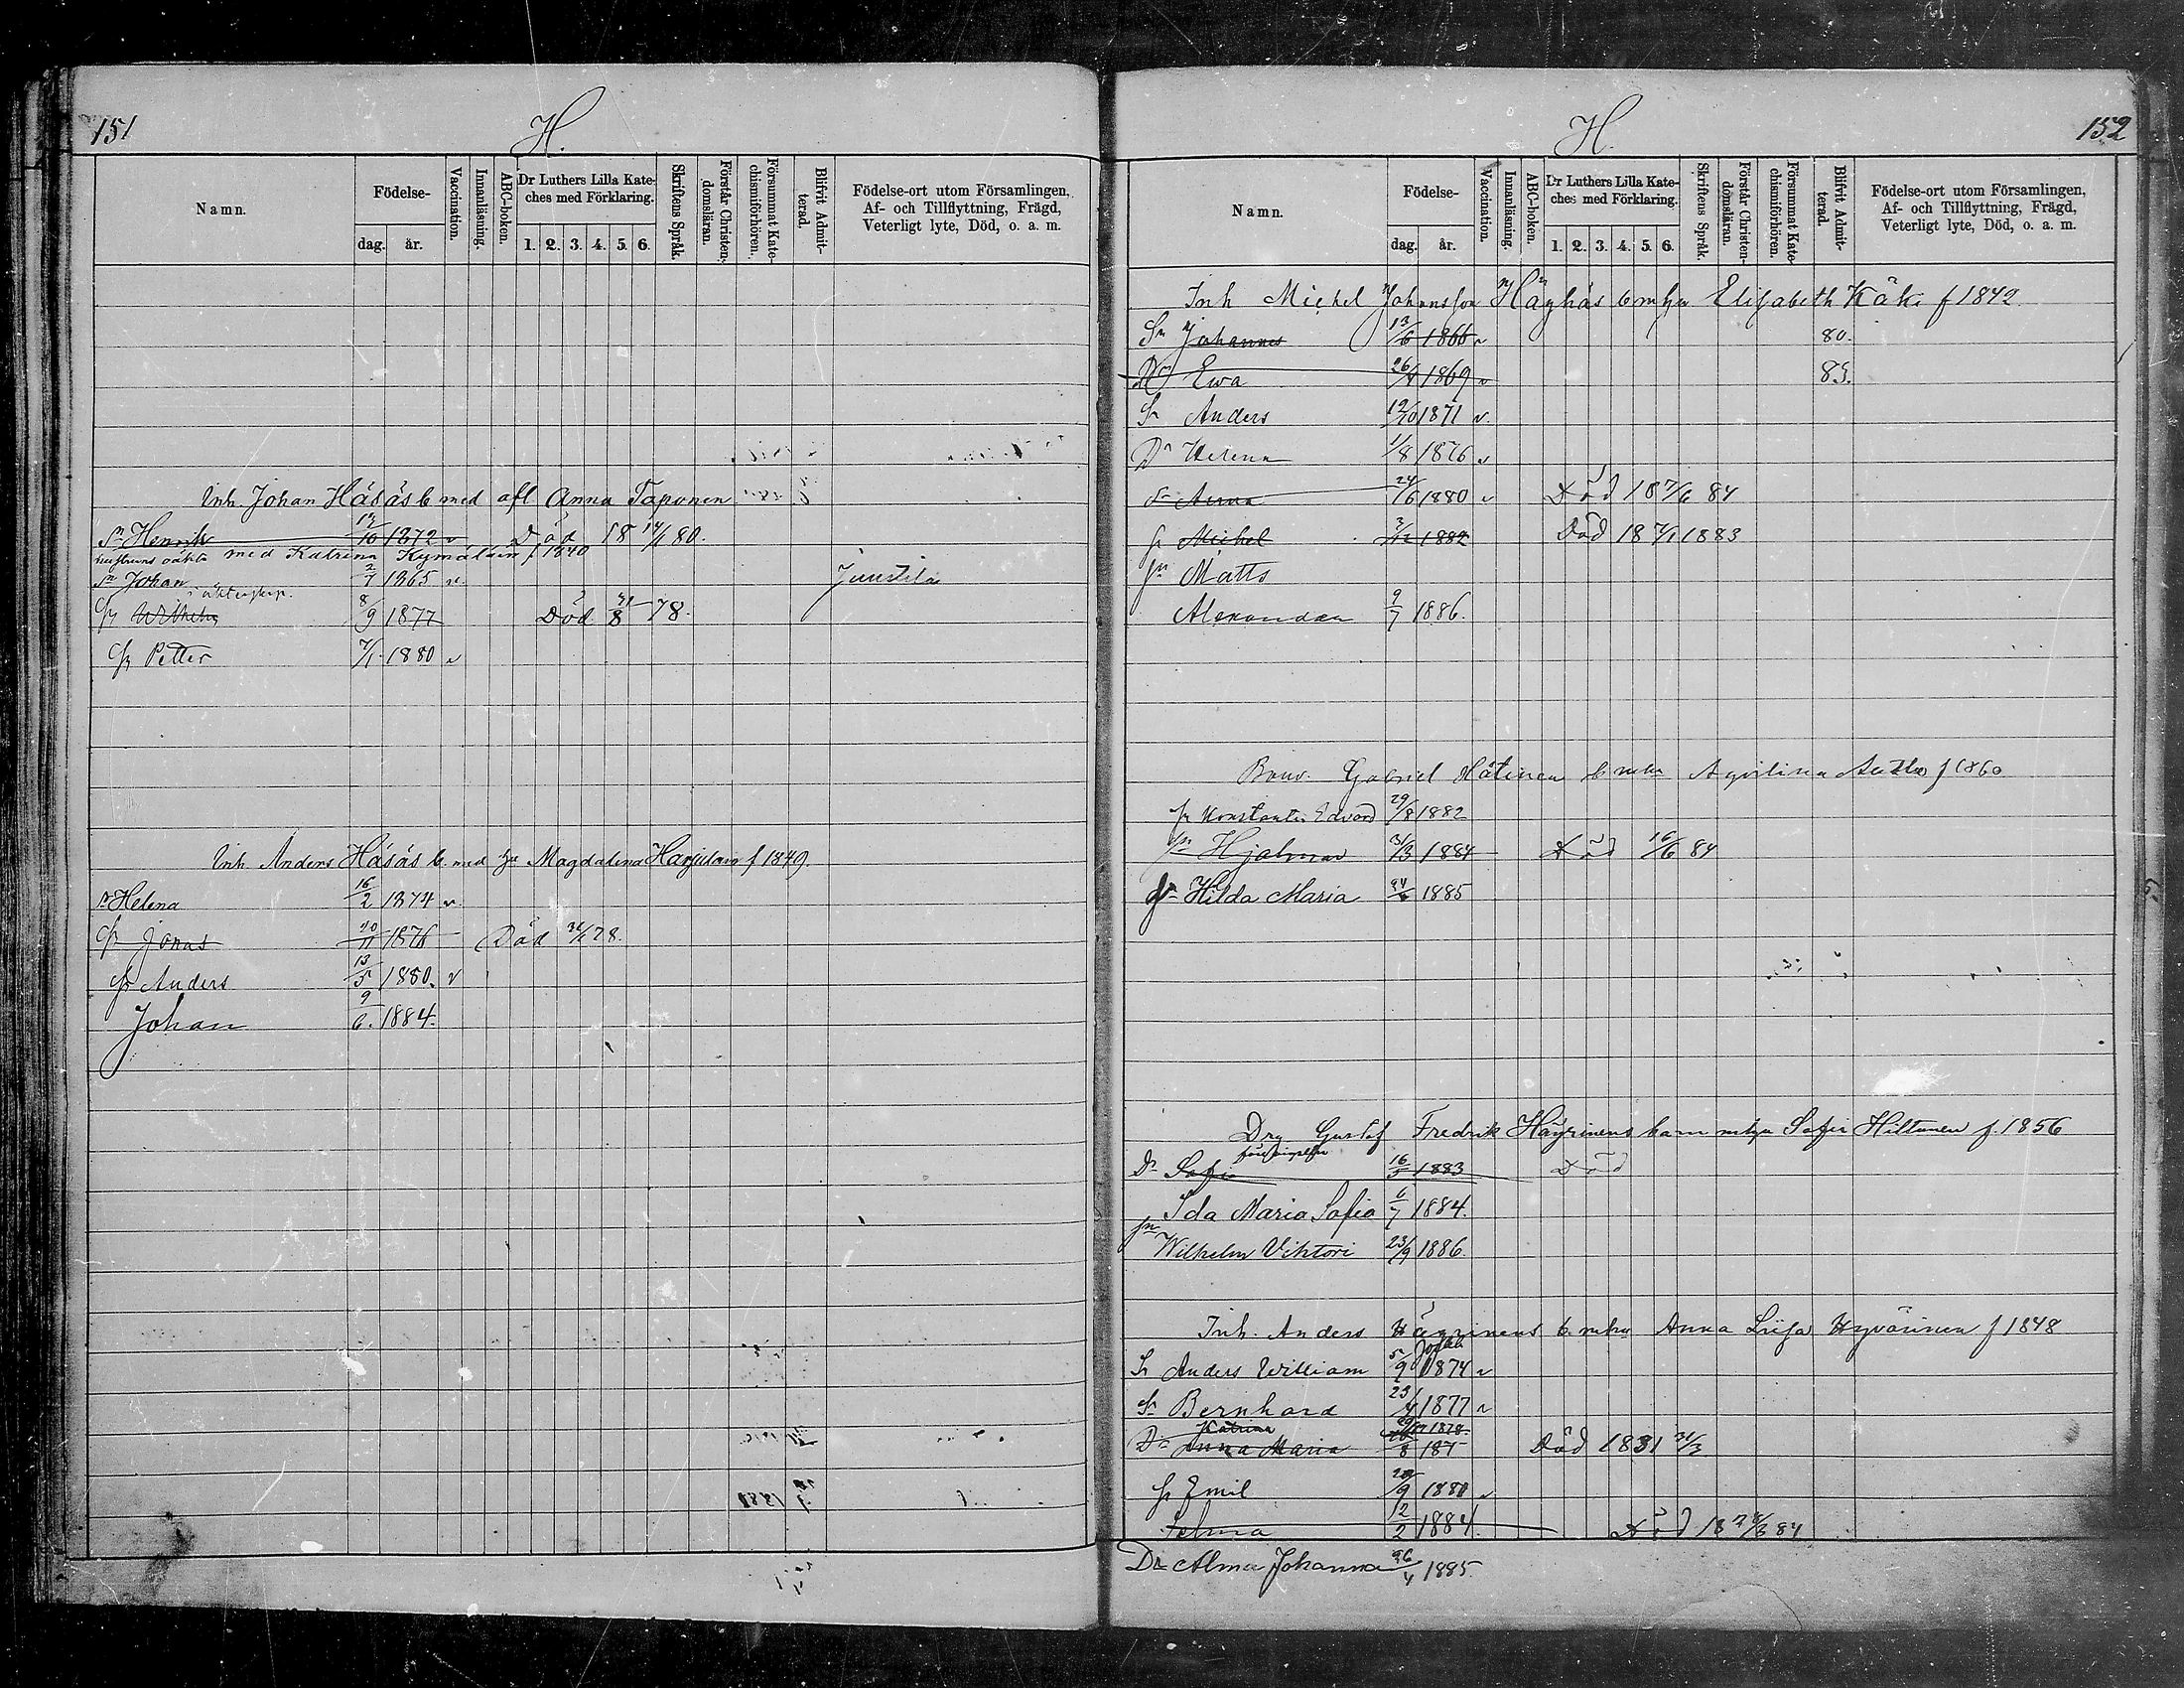 151
H.
Namn.
Födelse-
dag.
år.
Vaccination.
Innanläsning.
ABC-boken.
Dr Luthers Lilla Kate-
ches med Förklaring.
1. 2. 3. 4. 5. 6.
Skriftens Språk.
Förstår Christen-
domsläran.
Försummat Kate-
chismiförhören.
Blifvit Admit-
terad.
Födelse-ort utom Församlingen,
Af- och Tillflyttning, Frägd,
Veterligt lyte, Död, o. a. m.
Inh. Johan Håsås b med afl Anna Taponen
Sn Henrik 12/10 1872 v Död 18 14/1 80.
hustruns oäkta med Katrina Kymäläin f 1840
Sn Johan 2/7 1865 v. Juustila
Sn Wilhelm 8/9 1877 Död 31/8 78.
Sn Petter 7/1 1880 v
Inh. Anders Håsås b. med hu Magdalena Harjulain f 1849.
Dr Helena 16/2 1874 v
Sn Jonas 20/11 1876 Död 78.
Sn Anders 13/5 1880. v
Johan 9/6. 1884.
H.
152
Namn.
Födelse-
dag.
år.
Vaccination.
Innanläsning.
ABC-boken.
Dr Luthers Lilla Kate-
ches med Förklaring.
1. 2. 3. 4. 5. 6.
Skriftens Språk.
Förstår Christen-
domsläran.
Försummat Kate-
chismiförhören.
Blifvit Admit-
terad.
Födelse-ort utom Församlingen,
Af- och Tillflyttning, Frägd,
Veterligt lyte, Död, o. a. m.
Inh Michel Johansson Häyhäs b mhu Elisabeth Käki f 1842
Sn Johannes 13/6 1866 v 80.
Dr Ewa 26/4 1869 v 85.
Sn Anders 12/10 1871 v.
Dr Helena 1/8 1876 v
Dr Anna 24/6 1880 v Död 18 7/6 84
Sn Michel 3/12 1882 Död 18 7/1 1883
Sn Matts
Alexander 9/7 1886.
Bonv. Gabriel Hätinen b mhu Aqvilina f 1860
Sn Konstantin Edvard 29/8 1882
Sn Hjalmar 31/3 1884 Död 16/6 84
Dr Hilda Maria 24/6 1885
Drg Gustaf Fredrik Häyrinens barn mhu Sofia Hiltunen f. 1856
Dr Sofia 16/5 1883 Död
Ida Maria Sofia 6/7 1884.
Sn Wilhelm Viktori 23/9 1886
Inh. Anders Häyrinens b. mhu Anna Liisa Hyvärinen f 1848
Sn Anders William 5/9 1874 v
Sn Bernhard 23/4 1877 v
Katrina 1878
Dr Anna Maria 8 187 Död 1881 31/3
Sn Emil 20/9 1880 v
Selma 12/2 1884. Död 18 28/3 84
Dr Alma Johanna 26/4 1885.